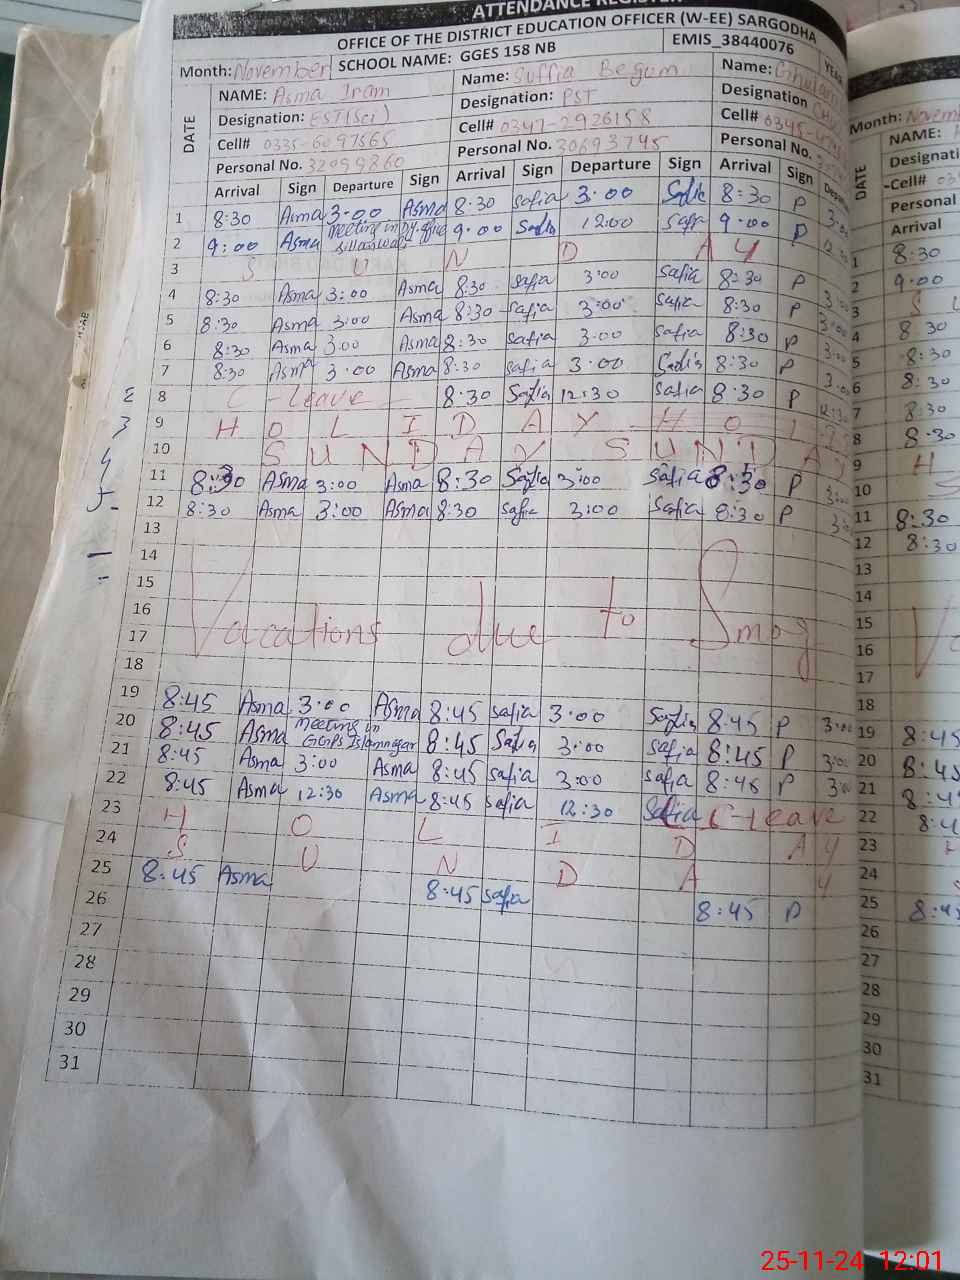 ATTENDANCE REGISTER
OFFICE OF THE DISTRICT EDUCATION OFFICER (W-EE) SARGODHA
Month: November SCHOOL NAME: GGES 158 NB EMIS_38440076 YEAR
DATE NAME: Asma Iram Name: Suffia Begum Name: Ghulam
Designation: EST(Sci) Designation: PST Designation
Cell# 0335-6097565 Cell# 0347-2926158 Cell# 0345-
Personal No. 32099860 Personal No. 30693745 Personal No.
Arrival Sign Departure Sign Arrival Sign Departure Sign Arrival Sign
1 8:30 Asma 3:00 Asma 8:30 Safia 3:00 Safia 8:30 P
2 9:00 Asma meeting in 9:00 Safia 12:00 Safia 9:00 P
3 S U N D A Y
4 8:30 Asma 3:00 Asma 8:30 Safia 3:00 Safia 8:30 P 3:00
5 8:30 Asma 3:00 Asma 8:30 Safia 3:00 Safia 8:30 P 3:00
6 8:30 Asma 3:00 Asma 8:30 Safia 3:00 Safia 8:30 P 3:00
7 8:30 Asma 3:00 Asma 8:30 Safia 3:00 Safia 8:30 P 3:00
8 C-Leave 8:30 Safia 12:30 Safia 8:30 P 12:30
9 H O L I D A Y H O L I
10 S U N D A Y S U N D A Y
11 8:30 Asma 3:00 Asma 8:30 Safia 3:00 Safia 8:30 P 3:00
12 8:30 Asma 3:00 Asma 8:30 Safia 3:00 Safia 8:30 P 3:00
13
14
15
16 Vacations due to Smog
17
18
19 8:45 Asma 3:00 Asma 8:45 Safia 3:00 Safia 8:45 P 3:00
20 8:45 Asma meeting in GGPS Islamnagar 8:45 Safia 3:00 Safia 8:45 P 3:00
21 8:45 Asma 3:00 Asma 8:45 Safia 3:00 Safia 8:45 P 3:00
22 8:45 Asma 12:30 Asma 8:45 Safia 12:30 Safia C-Leave
23 H O L I D A Y
24 S U N D A Y
25 8:45 Asma 8:45 Safia 8:45 P
26
27
28
29
30
31
Month: November
DATE NAME:
Cell#
Personal
Arrival
1 8:30
2 9:00
3 S
4 8:30
5 8:30
6 8:30
7 8:30
8 8:30
9 H
10
11 8:30
12 8:30
13
14
15
16
17
18
19 8:45
20 8:45
21
22
23
24
25
26
27
28
29
30
31
25-11-24 12:01